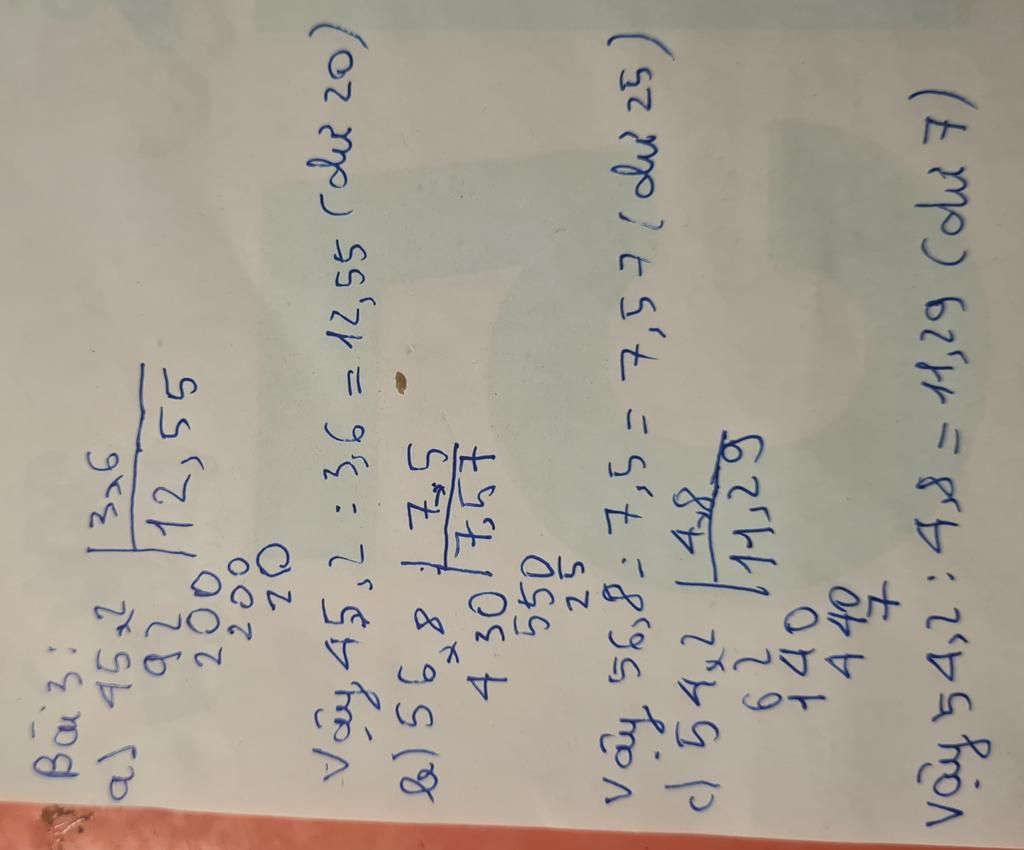 Bài 3:
a) 45,2 | 3,6
92 | 12,55
200
200
20
Vậy 45,2 : 3,6 = 12,55 (dư 20)
b) 56,8 | 7,5
4 30 | 7,57
550
25
Vậy 56,8 : 7,5 = 7,57 (dư 25)
c) 54,2 | 4,8
62 | 11,29
140
440
7
Vậy 54,2 : 4,8 = 11,29 (dư 7)